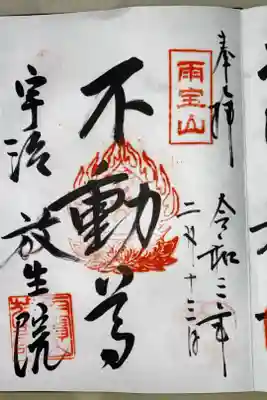 奉拝
令和三年
二月十三日
雨宝山
不動尊
宇治
放生院